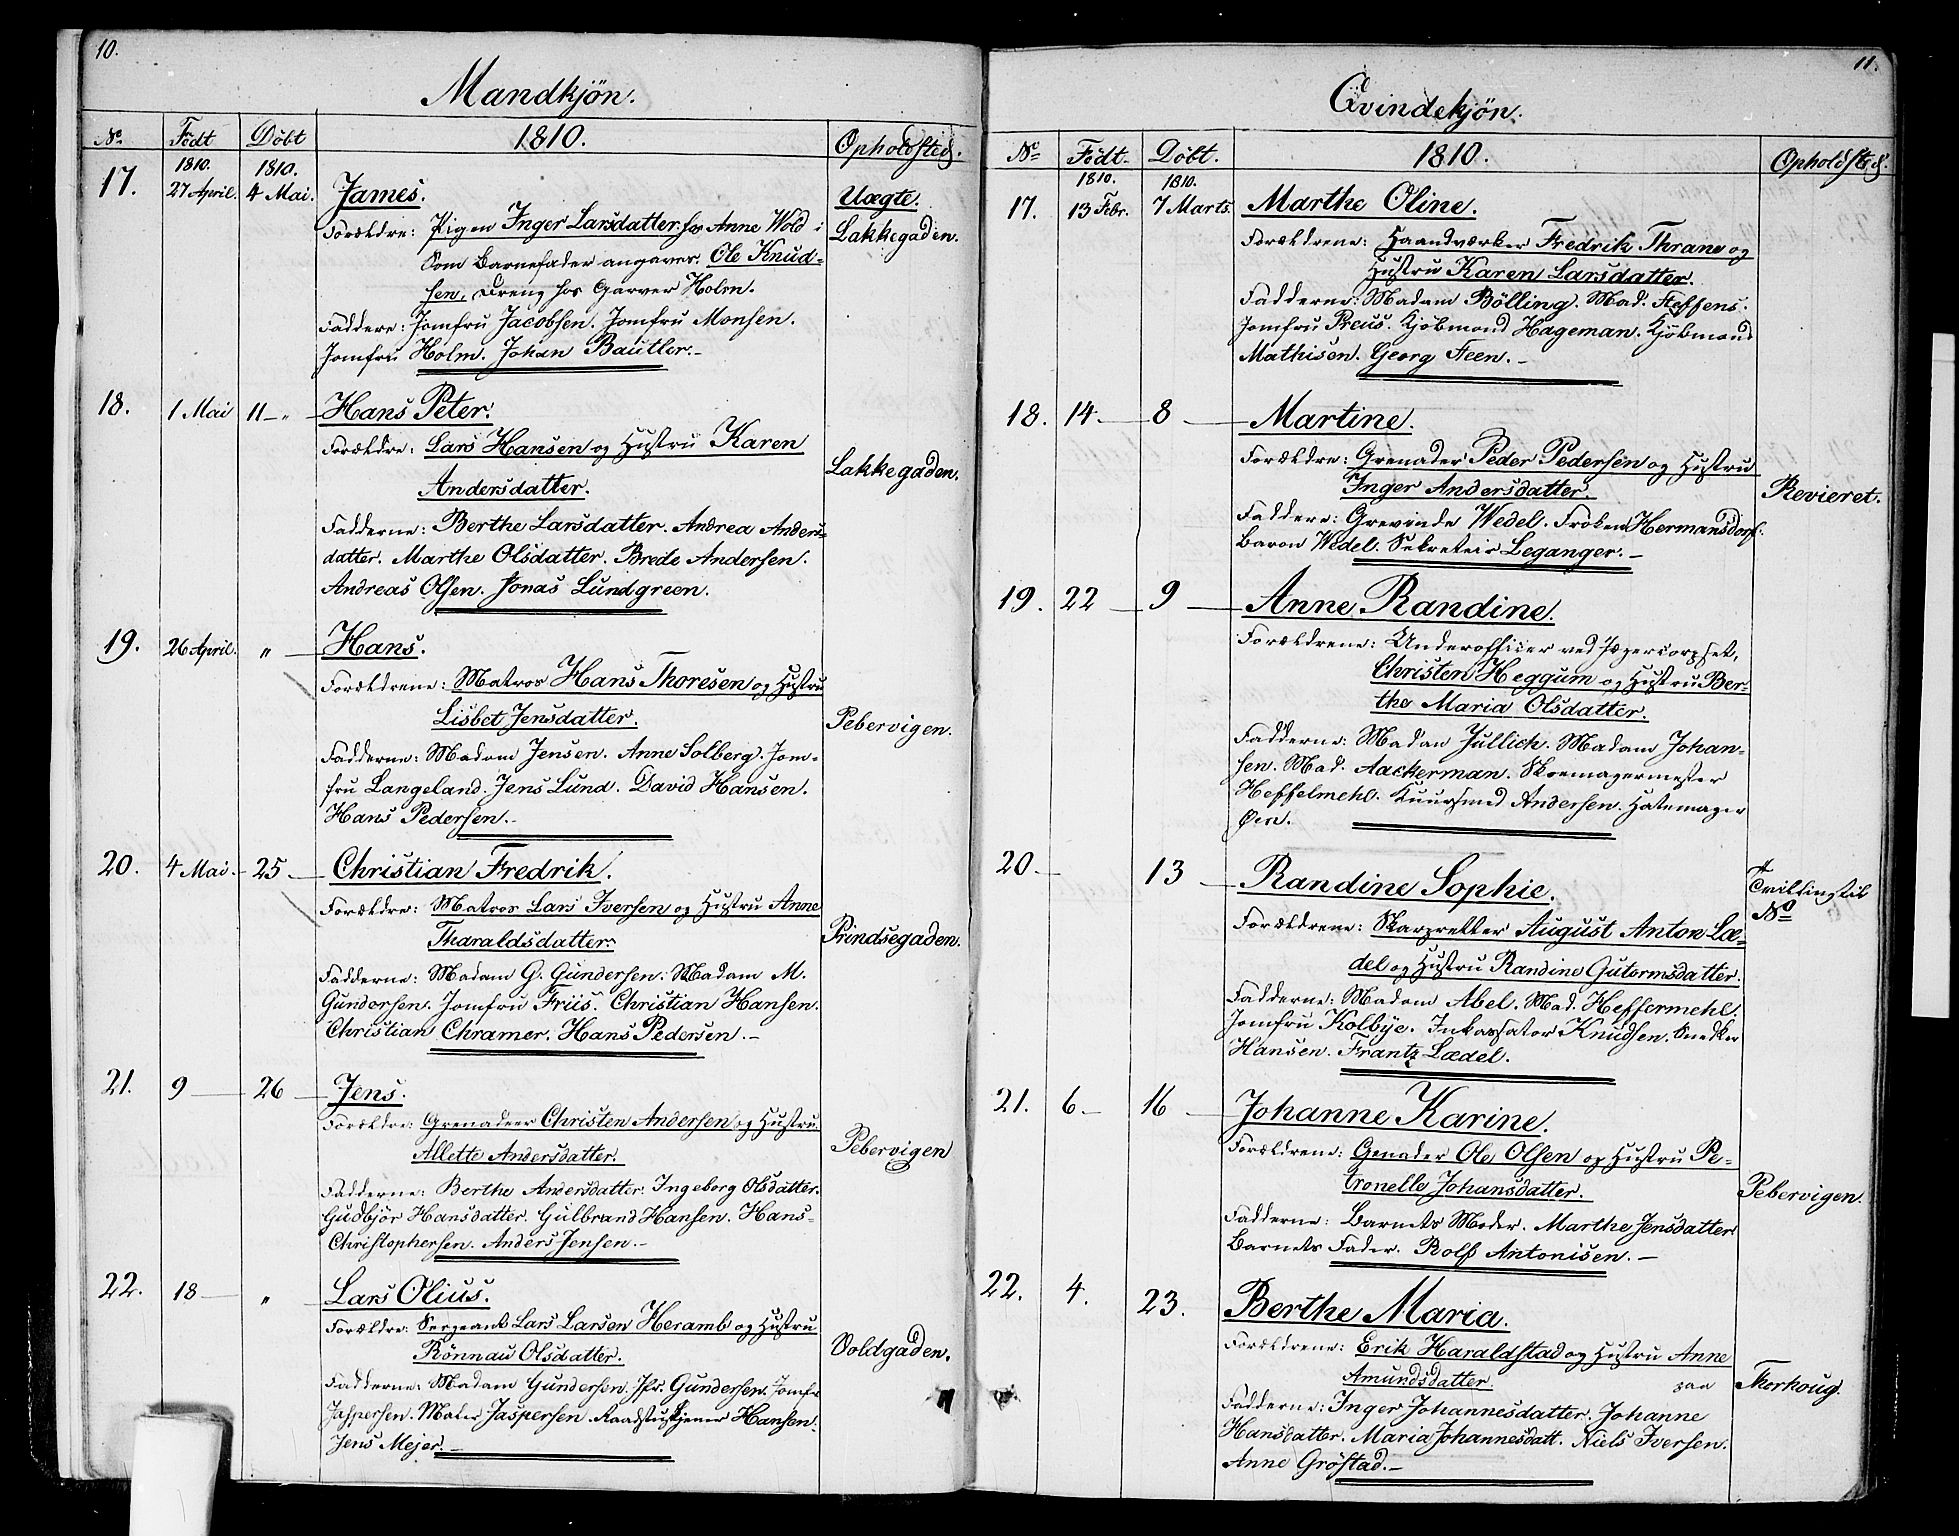 10.
Mandkjön.
No Födt Döbt 1810. Opholdsted.
1810. 1810.
17. 27 April. 4 Mai. James. Uægte.
Forældre: Pigen Inger Larsdatter hos Anne Wold i Lakkegaden.
Som Barnefader angaves. Ole Knud-
sen, Dreng hos Garver Holm.
Faddere: Jomfru Jacobsen. Jomfru Monsen.
Jomfru Holm. Johan Bautler.-
18. 1 Mai 11 - " - Hans Peter.
Forældre: Lars Hansen og Hustru Karen
Andersdatter. Lakkegaden.
Fadderne: Berthe Larsdatter. Andrea Anders-
datter. Marthe Olsdatter. Brede Andersen.
Andreas Olsen. Jonas Lundgreen.
19. 26 April. " - Hans.
Forældrene: Matros Hans Thoresen og Hustru
Lisbet Jensdatter. Pebervigen.
Fadderne: Madam Jensen. Anne Solberg. Jom-
fru Langeland. Jens Lund. David Hansen.
Hans Pedersen.-
20. 4 Mai - 25 - Christian Fredrik.
Forældre: Matros Lars Iversen og Hustru Anne
Tharaldsdatter. Prindsegaden.
Fadderne: Madam G. Gundersen. Madam M.
Gundersen. Jomfru Friis. Christian Hansen.
Christian Chramer. Hans Pedersen.-
21. 9 - 26 - Jens.
Forældre: Grenadeer Christen Andersen og Hustru
Allette Andersdatter. Pebervigen
Fadderne: Berthe Andersdatter. Ingeborg Olsdatter.
Gudbjör Hansdatter. Gulbrand Hansen. Hans
Christophersen. Anders Jensen.-
22. 18 - " - Lars Olius.
Forældre: Sergeant Lars Larsen Heramb og Hustru
Rönnau Olsdatter. Voldgaden.
Fadderne: Madam Gundersen. Jfr. Gundersen. Jomfr
Jaspersen. Maler Jaspersen. Raadstutjener Hansen.
Jens Mejer.-
11.
Qvindekjön.
No Födt. Döbt. 1810. Opholdsted.
1810. 1810.
17. 13 Febr. 7 Marts. Marthe Oline.
Forældrene: Haandværker Fredrik Thrane og
Hustru Karen Larsdatter.
Fadderne: Madam Bölling. Mad. Steffens.
Jomfru Preus. Kjöbmand Hageman. Kjöbmand
Mathisen. Georg Steen.-
18. 14 - 8 - Martine.
Forældre: Grenader Peder Pedersen og Hustru
Inger Andersdatter. Revieret.
Faddere: Grevinde Wedel. Fröken Hermansdorf.
Baron Wedel. Sekreteir Leganger.-
19. 22 - 9 - Anne Randine.
Forældrene: Underofficier ved Jægercorpset,
Christen Heggum og Hustru Ber-
the Maria Olsdatter.
Fadderne: Madan Jullich. Madam Johan-
sen. Mad. Aackerman. Skomagermester
Heffelmehl. Kuursmed Andersen. Hatemager
Öen.
20. - 13 - Randine Sophie. Tvilling til
No
Forældrene: Skarpretter August Anton Læ-
del og Hustru Randine Gutormsdatter.
Fadderne: Madam Abel. Mad. Heffermehl.
Jomfru Kolbye. Inkassator Knudsen. Snedker
Hansen. Frantz Lædel.
21. 6 - 16 - Johanne Karine.
Forældrene: Genader Ole Olsen og Hustru Pe-
tronelle Johansdatter. Pebervigen.
Fadderne: Barnets Moder. Marthe Jensdatter
Barnets Fader. Rolf Antonisen.-
22. 4. 23. Berthe Maria.
Forældrene: Erik Haraldstad og Hustru Anne
Amundsdatter. paa Thorhoug.
Fadderne: Inger Johannesdatter. Johanne
Hansdatter. Maria Johannesdatt. Niels Iversen.
Anne Gröstad.-